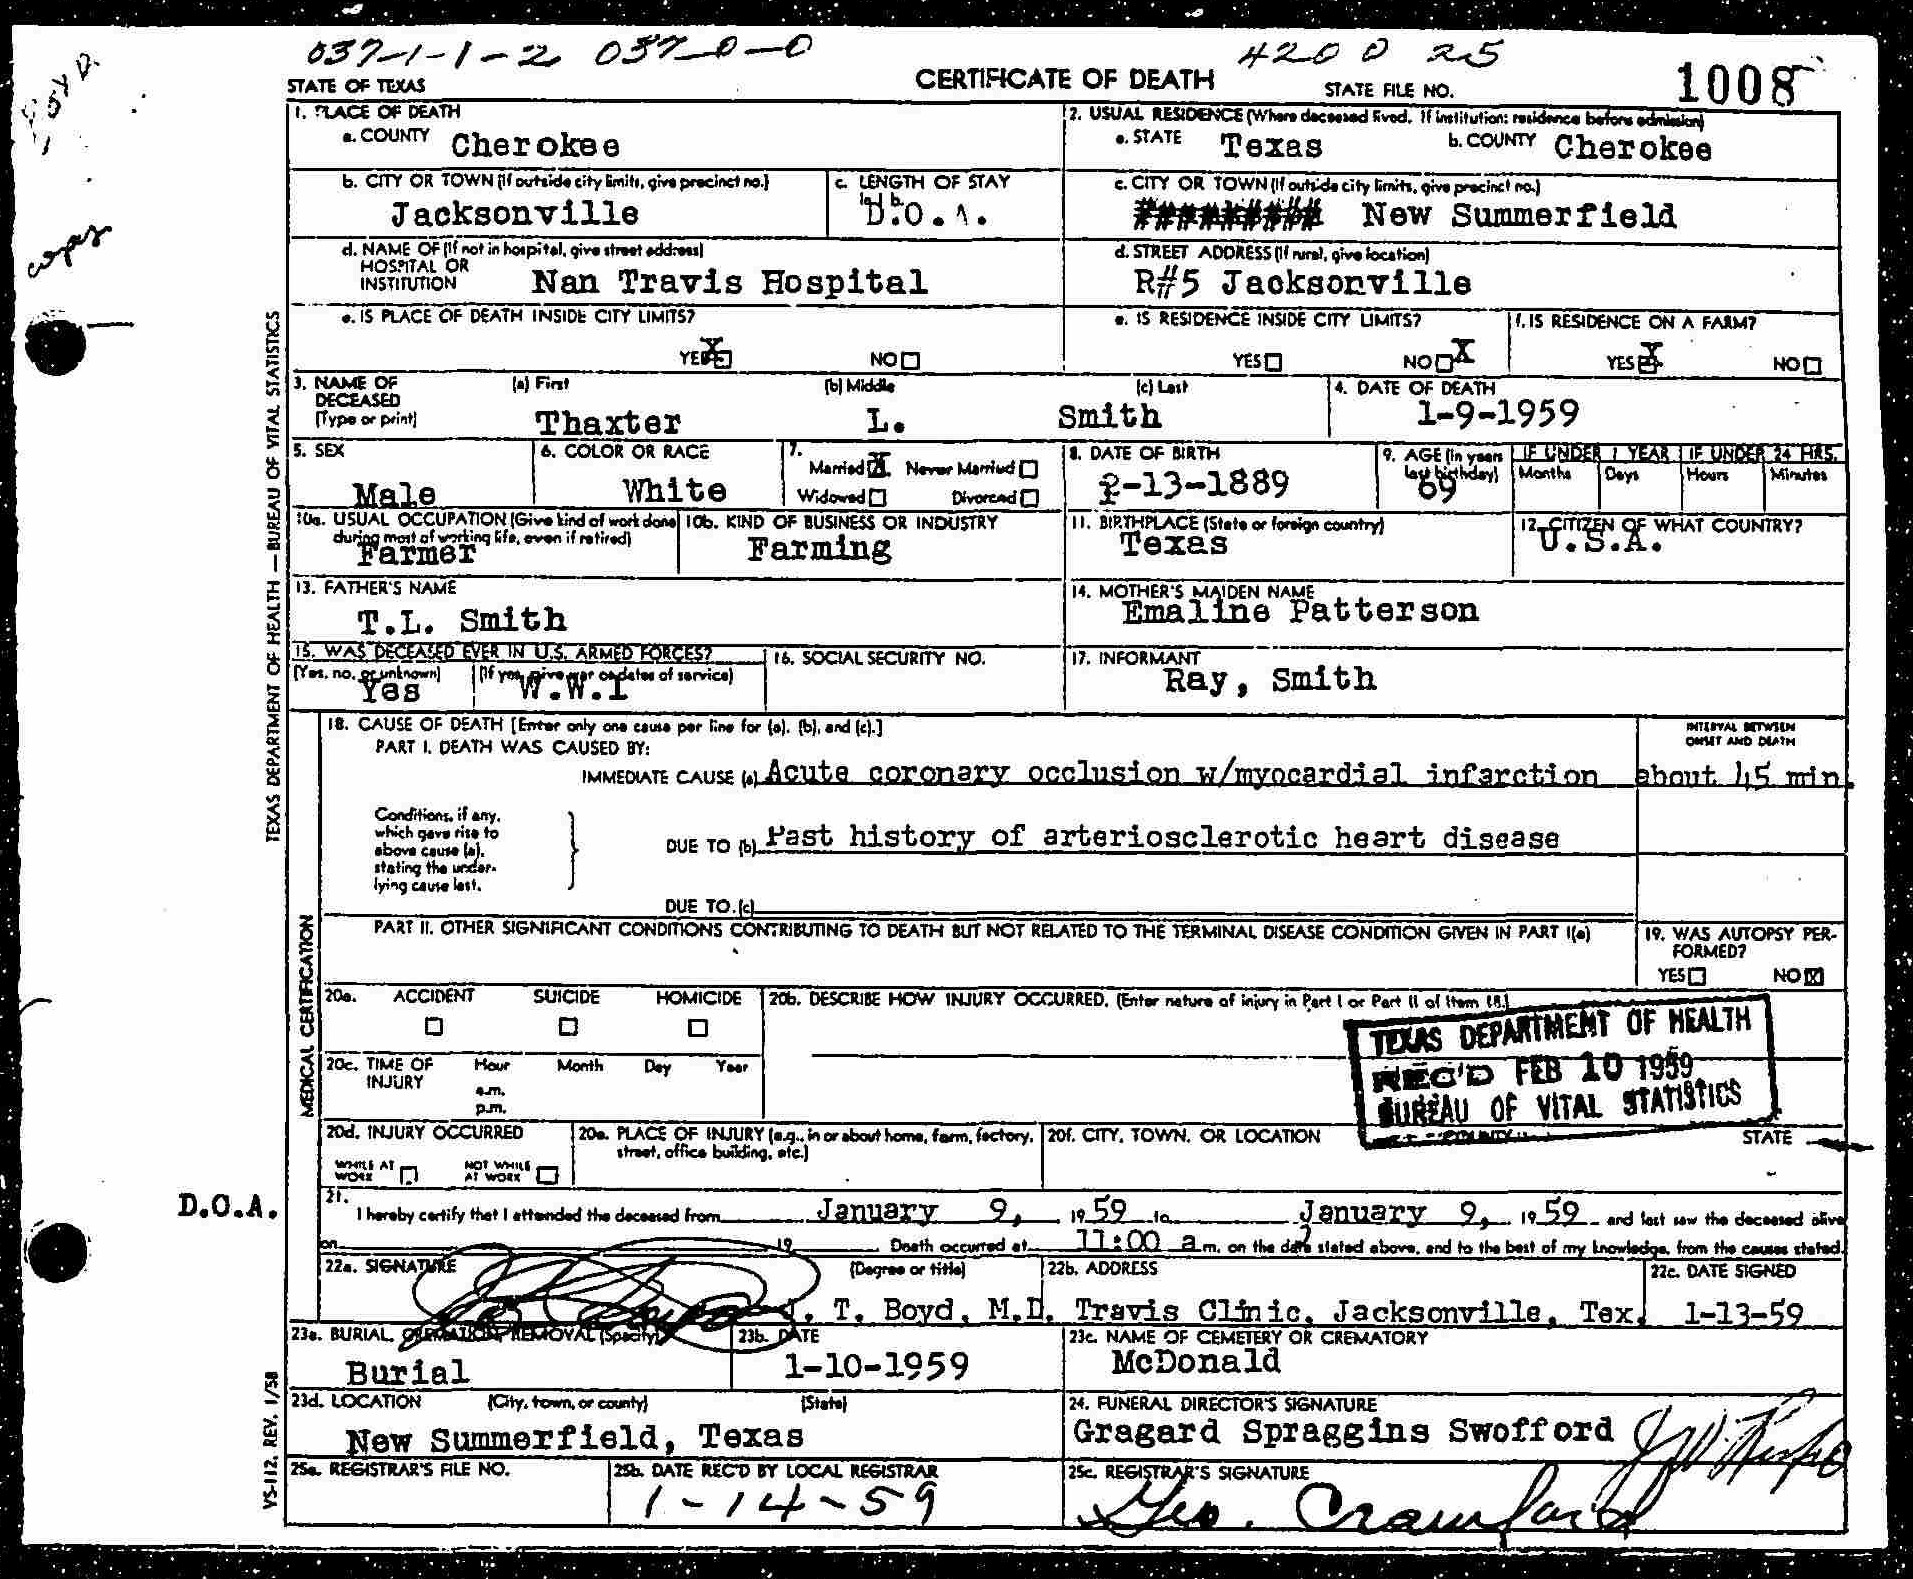 037-1-1-2 037-0-0 4200 25
STATE OF TEXAS CERTIFICATE OF DEATH STATE FILE NO. 1008
1. PLACE OF DEATH
a. COUNTY Cherokee
2. USUAL RESIDENCE (Where deceased lived. If institution: residence before admission)
a. STATE Texas b. COUNTY Cherokee
b. CITY OR TOWN (If outside city limits, give precinct no.)
Jacksonville
c. LENGTH OF STAY
in 1b.
D.O.A.
c. CITY OR TOWN (If outside city limits, give precinct no.)
######### New Summerfield
copy
d. NAME OF (If not in hospital, give street address)
HOSPITAL OR
INSTITUTION Nan Travis Hospital
d. STREET ADDRESS (If rural, give location)
R#5 Jacksonville
e. IS PLACE OF DEATH INSIDE CITY LIMITS?
YES X NO
e. IS RESIDENCE INSIDE CITY LIMITS?
YES NO X
f. IS RESIDENCE ON A FARM?
YES X NO
3. NAME OF
DECEASED
(Type or print)
(a) First (b) Middle (c) Last
Thaxter L. Smith
4. DATE OF DEATH
1-9-1959
5. SEX
Male
6. COLOR OR RACE
White
7.
Married X Never Married
Widowed Divorced
8. DATE OF BIRTH
2-13-1889
9. AGE (In years
last birthday)
69
IF UNDER 1 YEAR IF UNDER 24 HRS.
Months Days Hours Minutes
10a. USUAL OCCUPATION (Give kind of work done
during most of working life, even if retired)
Farmer
10b. KIND OF BUSINESS OR INDUSTRY
Farming
11. BIRTHPLACE (State or foreign country)
Texas
12. CITIZEN OF WHAT COUNTRY?
U.S.A.
13. FATHER'S NAME
T.L. Smith
14. MOTHER'S MAIDEN NAME
Emaline Patterson
15. WAS DECEASED EVER IN U.S. ARMED FORCES?
(Yes, no, or unknown) (If yes, give war or dates of service)
Yes W.W.I
16. SOCIAL SECURITY NO.
17. INFORMANT
Ray, Smith
TEXAS DEPARTMENT OF HEALTH — BUREAU OF VITAL STATISTICS
MEDICAL CERTIFICATION
18. CAUSE OF DEATH [Enter only one cause per line for (a), (b), and (c).]
PART I. DEATH WAS CAUSED BY:
INTERVAL BETWEEN
ONSET AND DEATH
IMMEDIATE CAUSE (a) Acute coronary occlusion w/myocardial infarction about 45 min.
Conditions, if any,
which gave rise to
above cause (a),
stating the under-
lying cause last.
DUE TO (b) Past history of arteriosclerotic heart disease
DUE TO (c)
PART II. OTHER SIGNIFICANT CONDITIONS CONTRIBUTING TO DEATH BUT NOT RELATED TO THE TERMINAL DISEASE CONDITION GIVEN IN PART I(a)
19. WAS AUTOPSY PER-
FORMED?
YES NO X
20a. ACCIDENT SUICIDE HOMICIDE
20b. DESCRIBE HOW INJURY OCCURRED. (Enter nature of injury in Part I or Part II of Item 18.)
TEXAS DEPARTMENT OF HEALTH
REC'D FEB 10 1959
BUREAU OF VITAL STATISTICS
20c. TIME OF
INJURY
Hour Month Day Year
a.m.
p.m.
20d. INJURY OCCURRED
WHILE AT
WORK
NOT WHILE
AT WORK
20e. PLACE OF INJURY (e.g., in or about home, farm, factory,
street, office building, etc.)
20f. CITY, TOWN, OR LOCATION COUNTY STATE
D.O.A.
21.
I hereby certify that I attended the deceased from January 9, 19 59 to January 9, 19 59 and last saw the deceased alive
on 19 . Death occurred at 11:00 a m. on the date stated above, and to the best of my knowledge, from the causes stated.
22a. SIGNATURE (Degree or title)
. T. Boyd, M.D.
22b. ADDRESS
Travis Clinic, Jacksonville, Tex.
22c. DATE SIGNED
1-13-59
23a. BURIAL, CREMATION, REMOVAL (Specify)
Burial
23b. DATE
1-10-1959
23c. NAME OF CEMETERY OR CREMATORY
McDonald
23d. LOCATION (City, town, or county) (State)
New Summerfield, Texas
24. FUNERAL DIRECTOR'S SIGNATURE
Gragard Spraggins Swofford
25a. REGISTRAR'S FILE NO.
25b. DATE REC'D BY LOCAL REGISTRAR
1-14-59
25c. REGISTRAR'S SIGNATURE
Geo. Crawford
VS-112, REV. 1/58